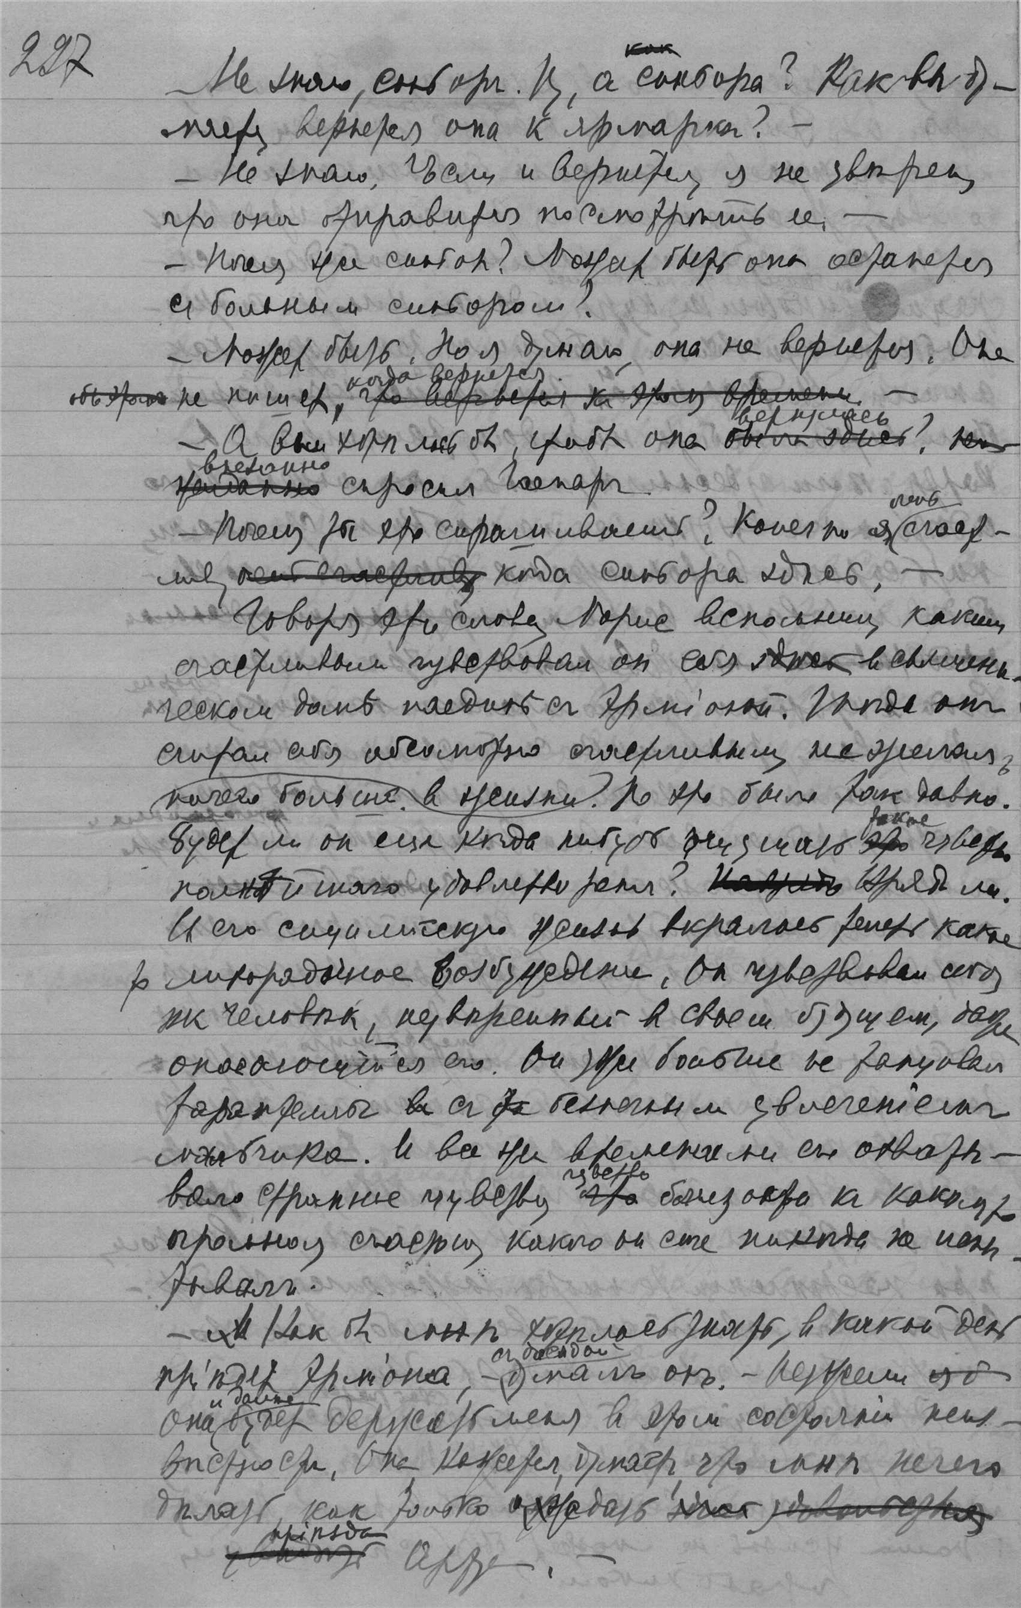 227
— Не знаю, синьоръ. Ну, а синьора? Какъ вы ду-
маете, вернется она къ ярмаркѣ? —
— Не знаю. Если и вернется, я не увѣренъ,
что она отправится посмотрѣть ее. —
— Почему же синьоръ? Можетъ быть она останется
съ больнымъ синьоромъ?
— Можетъ быть. Но я думаю, она не вернется. Она
не пишетъ, когда вернется. —
— А вы хотѣли бы, чтобъ она вернулась?
внезапно спросилъ Гаспаръ.
— Почему ты это спрашиваешь? Конечно я счаст-
ливъ, когда синьора здѣсь. —
Говоря эти слова, Морис вспомнилъ, какимъ
счастливымъ чувствовалъ онъ себя въ
ческомъ домѣ наединѣ съ Эрміоной. Тогда онъ
считалъ себя абсолютно счастливымъ, не желалъ
ничего больше въ жизни. Но это было такъ давно.
Будетъ ли онъ еще когда нибудь ощущать такое чувство
полнѣйшаго удовлетворенія? Врядъ ли.
В его сицилійскую жизнь вкралось теперь какое
то лихорадочное возбужденіе. Он чувствовалъ себя
какъ человѣкъ, неувѣренный в своемъ будущемъ, даже
опасающійся его. Он уже больше не танцовалъ
тарантеллы съ безпечнымъ увлеченіемъ
мальчика. И все же временами его охваты-
вало странное чувство, чувство близости къ какому то
огромному счастью, какого он еще никогда не испы-
тывалъ.
— Как бы мнѣ хотѣлось знать, в какой день
пріѣдетъ Эрміона, — съ досадой думалъ онъ. — Неужели
она и далѣе будетъ держать меня в этомъ состояніи неиз-
вѣстности. Она, кажется, думаетъ, что мнѣ нечего
дѣлать, какъ только ожидать
пріѣзда Артуа. —